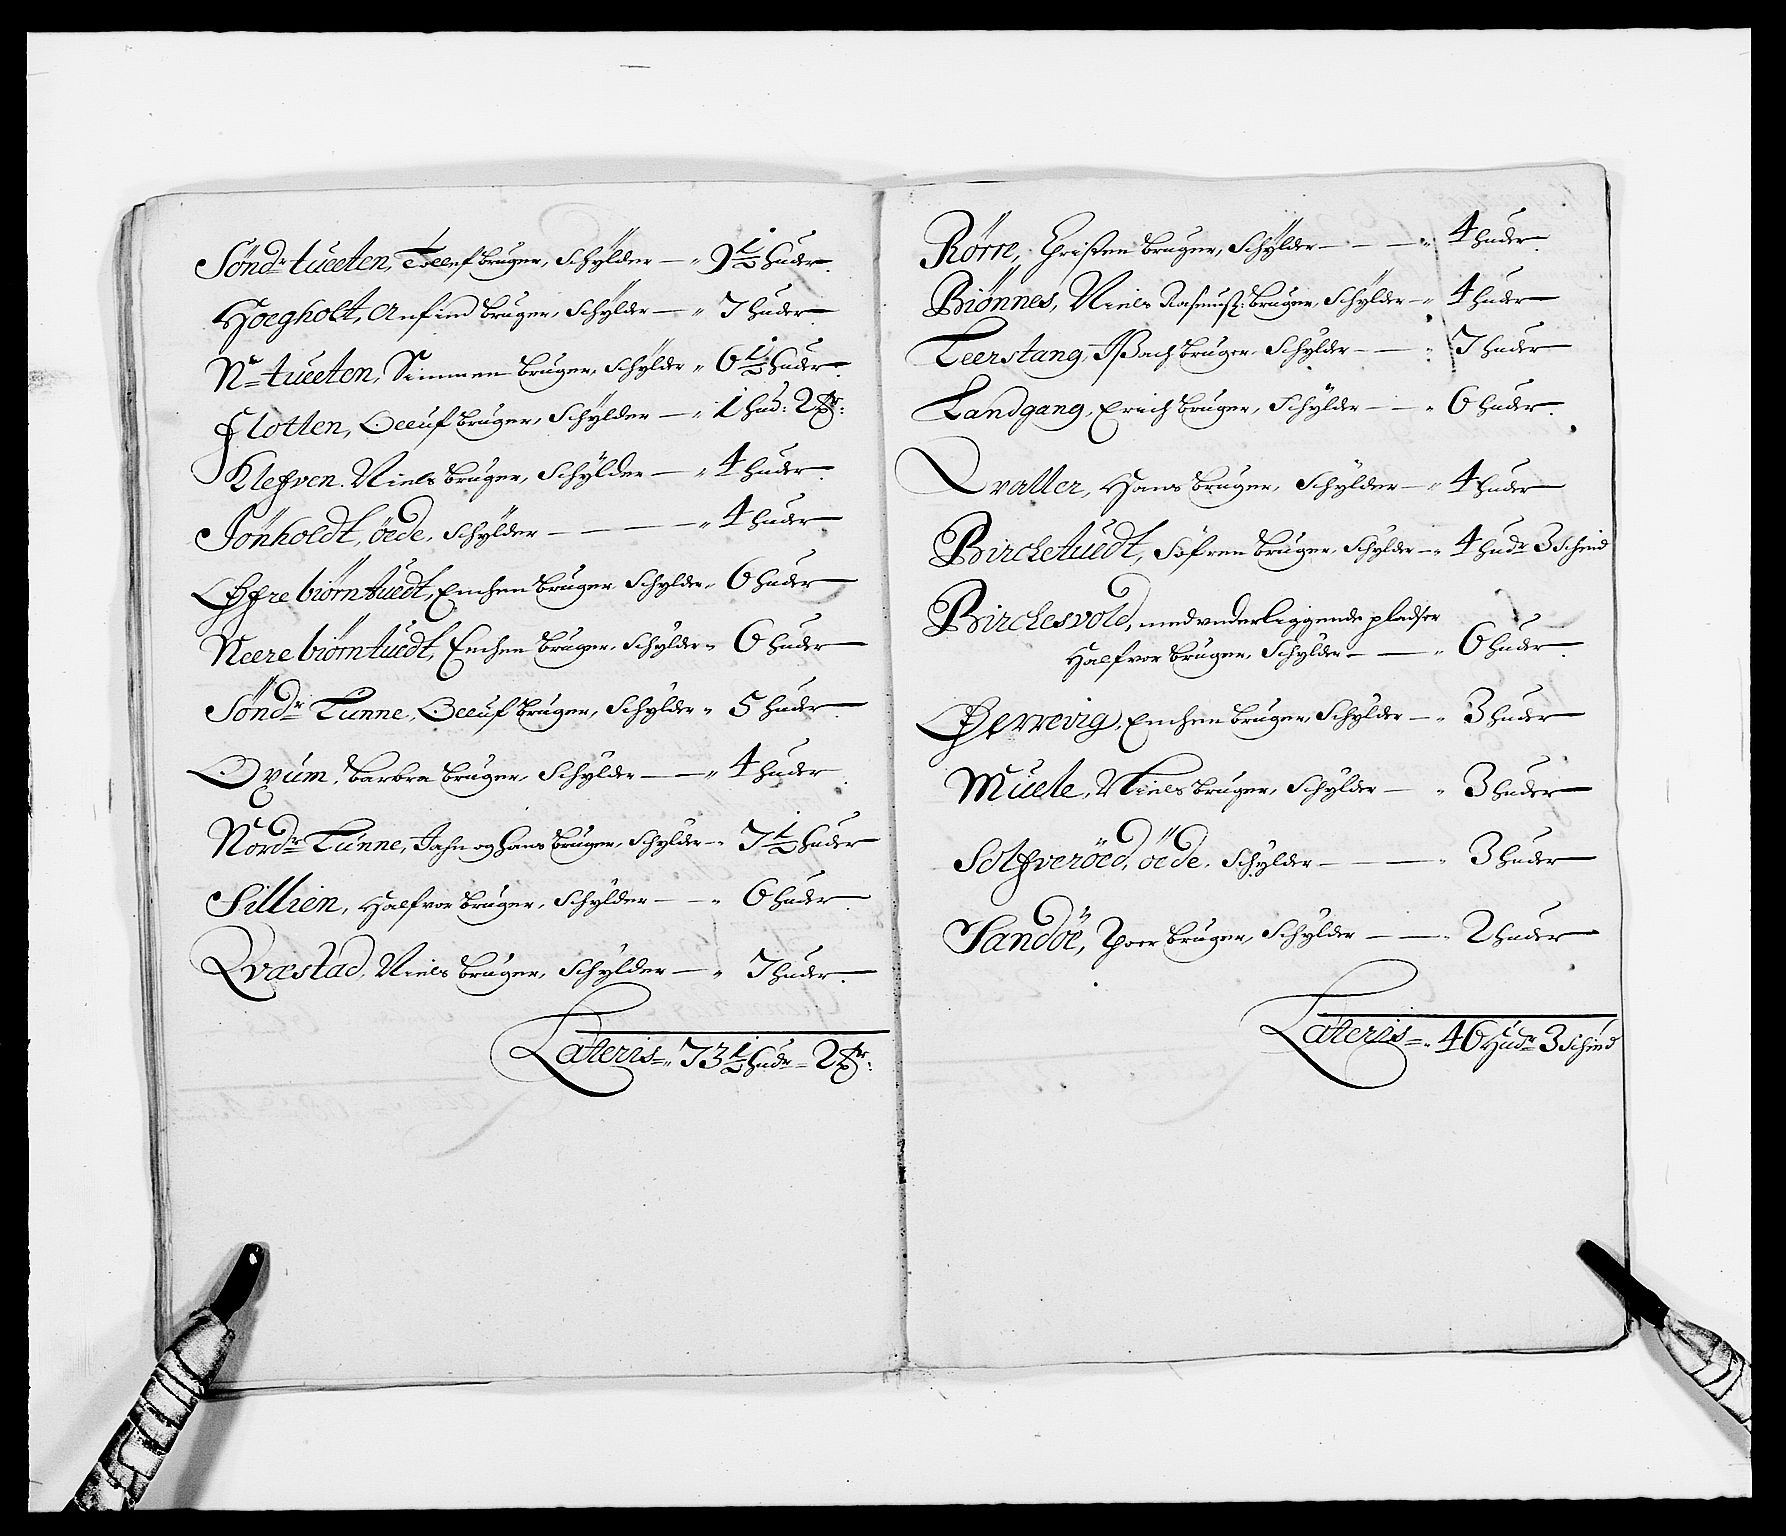 Søndr tueeten, Tollef bruger, Schÿlder — „ 9½ huder.
Hoegholt, Anfind bruger, Schÿlder — „ 7 huder.
N= tueeten, Simmen bruger, Schÿlder „ 6½ huder.
Flotten, Oeluf bruger, Schÿlder — „ 1 hud: 2
Klefven. Niels bruger, Schÿlder — „ 4 huder.
Jönholdt, öede, Schÿlder — — — „ 4 huder
Øfre biörntúedt, Enchen bruger Schylder „ 6 huder
Neere biörntúedt, Enchen bruger, Schylder „ 6 huder
Söndr Lunne, Oeluf bruger, Schylder „ 5 huder
Oxúm, barbra bruger, Schylder — — „ 4 huder
Nordr Lúnne, Jahn og hans bruger, Schylder „ 7½ huder
Sillien, Halfvor bruger, Schylder — — „ 6 huder
Qvæstad, Niels bruger, Schÿlder — „ 7 huder.
Lateris = „ 73½ hudr = 2
Rörre, Christen bruger, Schÿlder — — — „ 4 huder.
Biönnes, Niels Rasmus: bruger, Schÿlder — „ 4 huder
Leerstang, Isach bruger, Schylder — — „ 7 huder
Landgang, Erich bruger, Schÿlder — — „ 6 huder.
Qvaller, Hans bruger, Schÿlder — „ 4 huder
Birchetuedt, Söfren bruger, Schylder — „ 4 hudr 3 schind
Birchesvold, med underliggende pladser
Halfvor bruger, Schÿlder — — „ 6 huder.
Enchen bruger, Schylder — „ 3 huder
Múele, Niels bruger, Schylder — „ 3 huder
Solfveröed, öede, Schÿlder — — — „ 3 huder
Sandöe, Poer bruger, Schÿlder — — „ 2 huder
Lateris = „ 46 Hudr 3 schind